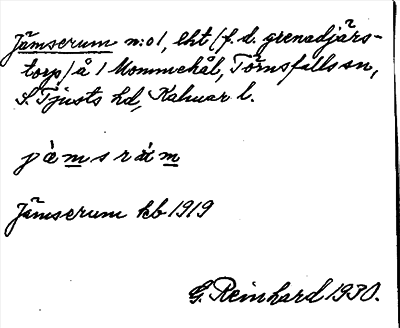 Jämserum n:o 1, lht (f. d. grenadjärs-
torp) å 1 Mommehål, Törnsfalls sn,
S. Tjusts hd, Kalmar l.
jämsrùm
Jämserum kb 1919
G. Reinhard 1930.